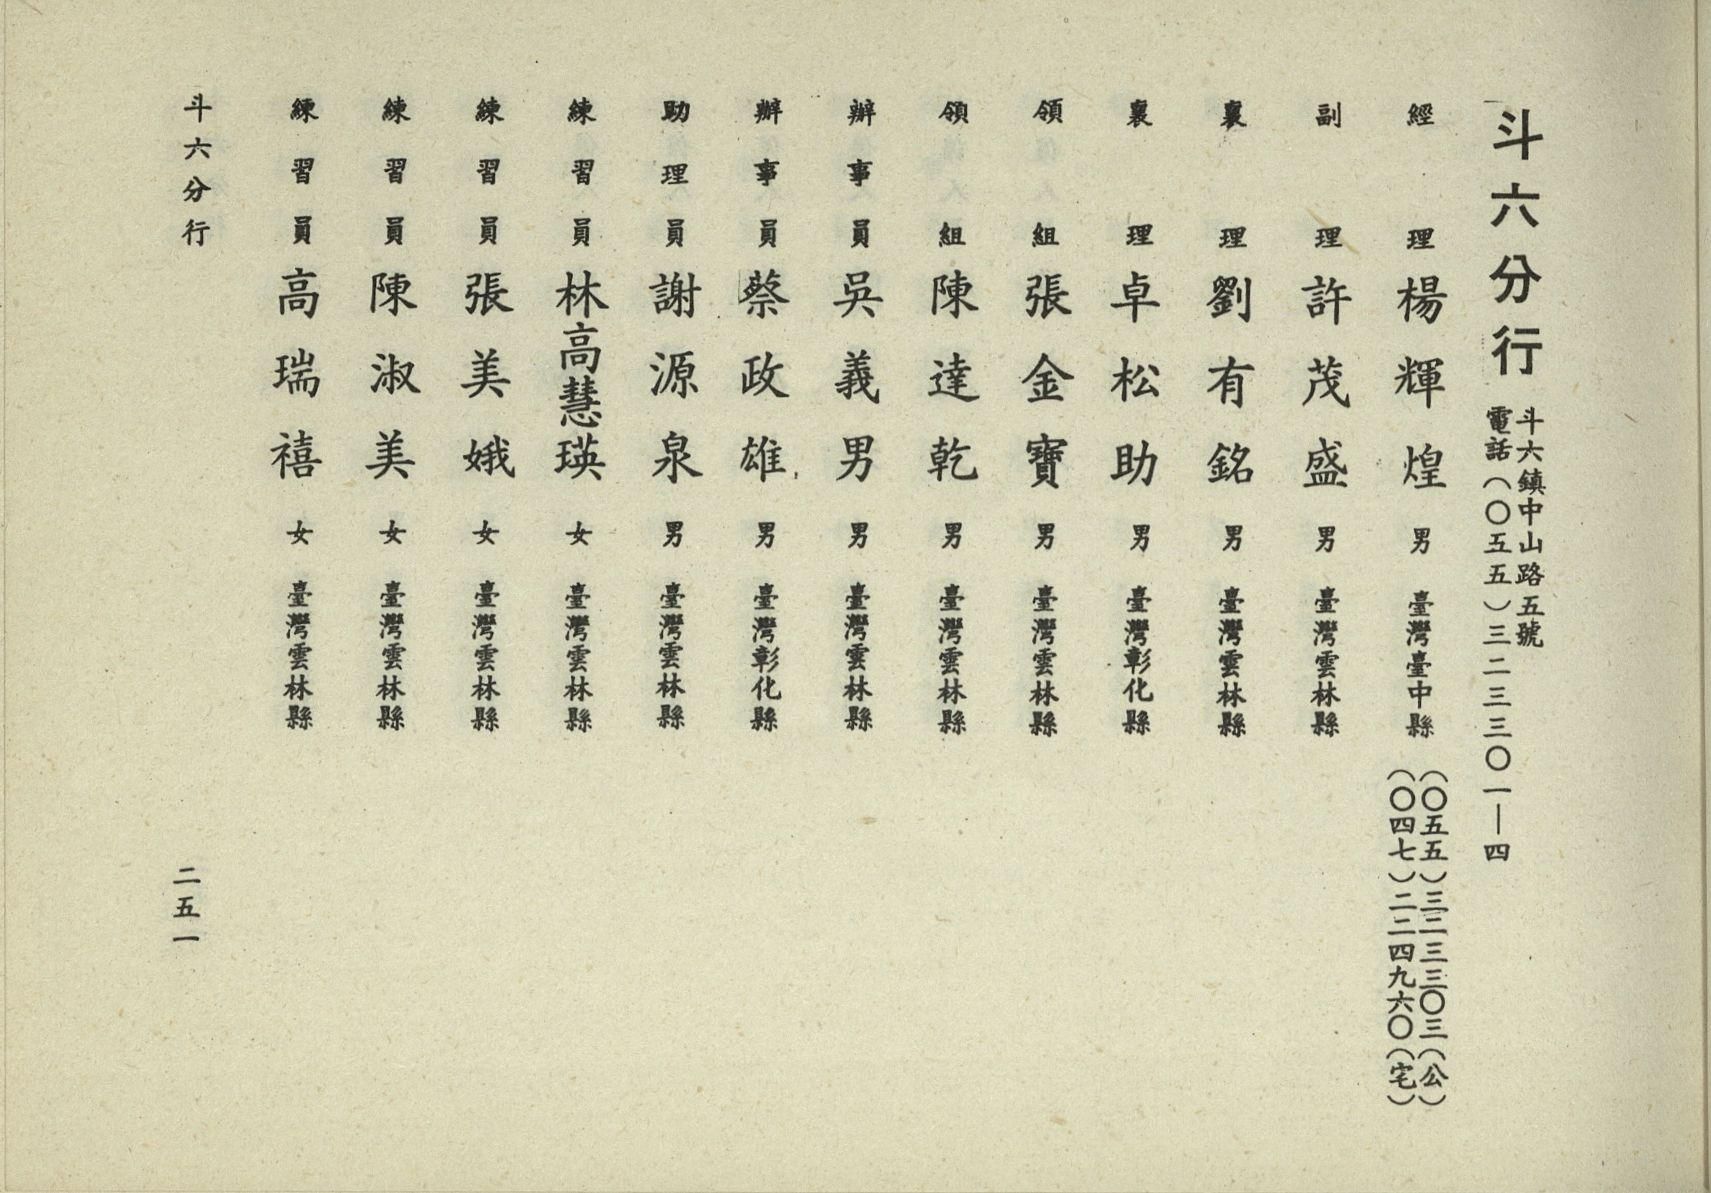 斗六分行
斗六鎮中山路五號
電話(〇五五)三二三三〇一—四
經理 楊輝煌 男 臺灣臺中縣
(〇五五)三二三三〇三(公)
(〇四七)二二四九六〇(宅)
副理 許茂盛 男 臺灣雲林縣
襄理 劉有銘 男 臺灣雲林縣
襄理 卓松助 男 臺灣彰化縣
領組 張金寶 男 臺灣雲林縣
領組 陳達乾 男 臺灣雲林縣
辦事員 吳義男 男 臺灣雲林縣
辦事員 蔡政雄 男 臺灣彰化縣
助理員 謝源泉 男 臺灣雲林縣
練習員 林高慧瑛 女 臺灣雲林縣
練習員 張美娥 女 臺灣雲林縣
練習員 陳淑美 女 臺灣雲林縣
練習員 高瑞禧 女 臺灣雲林縣
斗六分行
二五一